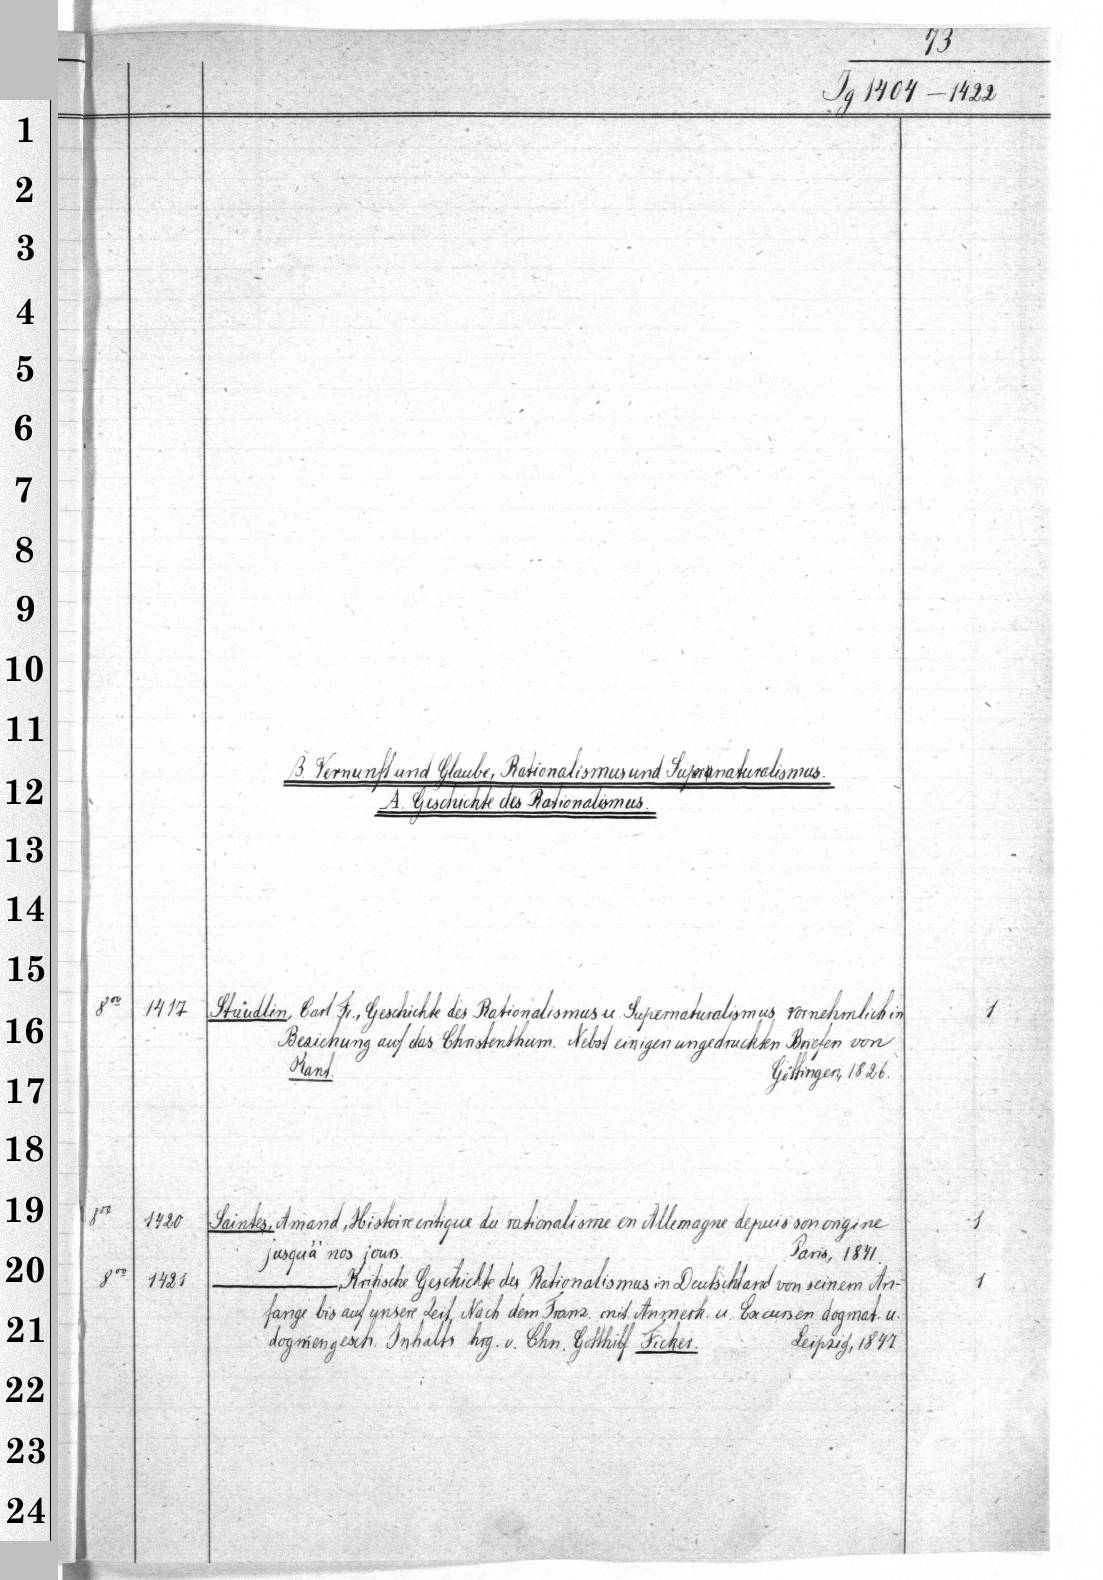 73
Ig 1404 – 1422
1
2
3
4
5
6
7
8
9
10
11
12
13
14
15
16
17
18
19
20
21
22
23
24
B Vernunft und Glaube, Rationalismus und Supranaturalismus.
A. Geschichte des Rationalismus.
8vo 1417 Stäudlin, Carl Fr., Geschichte des Rationalismus u. Supernaturalismus vornehmlich in 1
Beziehung auf das Christenthum. Nebst einigen ungedruckten Briefen von
Kant. Göttingen, 1826.
8vo 1420 Saintes, Amand, Histoire critique du rationalisme en Allemagne depuis son origine 1
jusqu'à nos jours. Paris, 1841.
8vo 1421 ———, Kritische Geschichte des Rationalismus in Deutschland von seinem An- 1
fange bis auf unsere Zeit. Nach dem Franz. mit Anmerk. u. Excursen dogmat. u.
dogmengesch. Inhalts hrg. v. Chn. Gotthilf Ficker. Leipzig, 1847